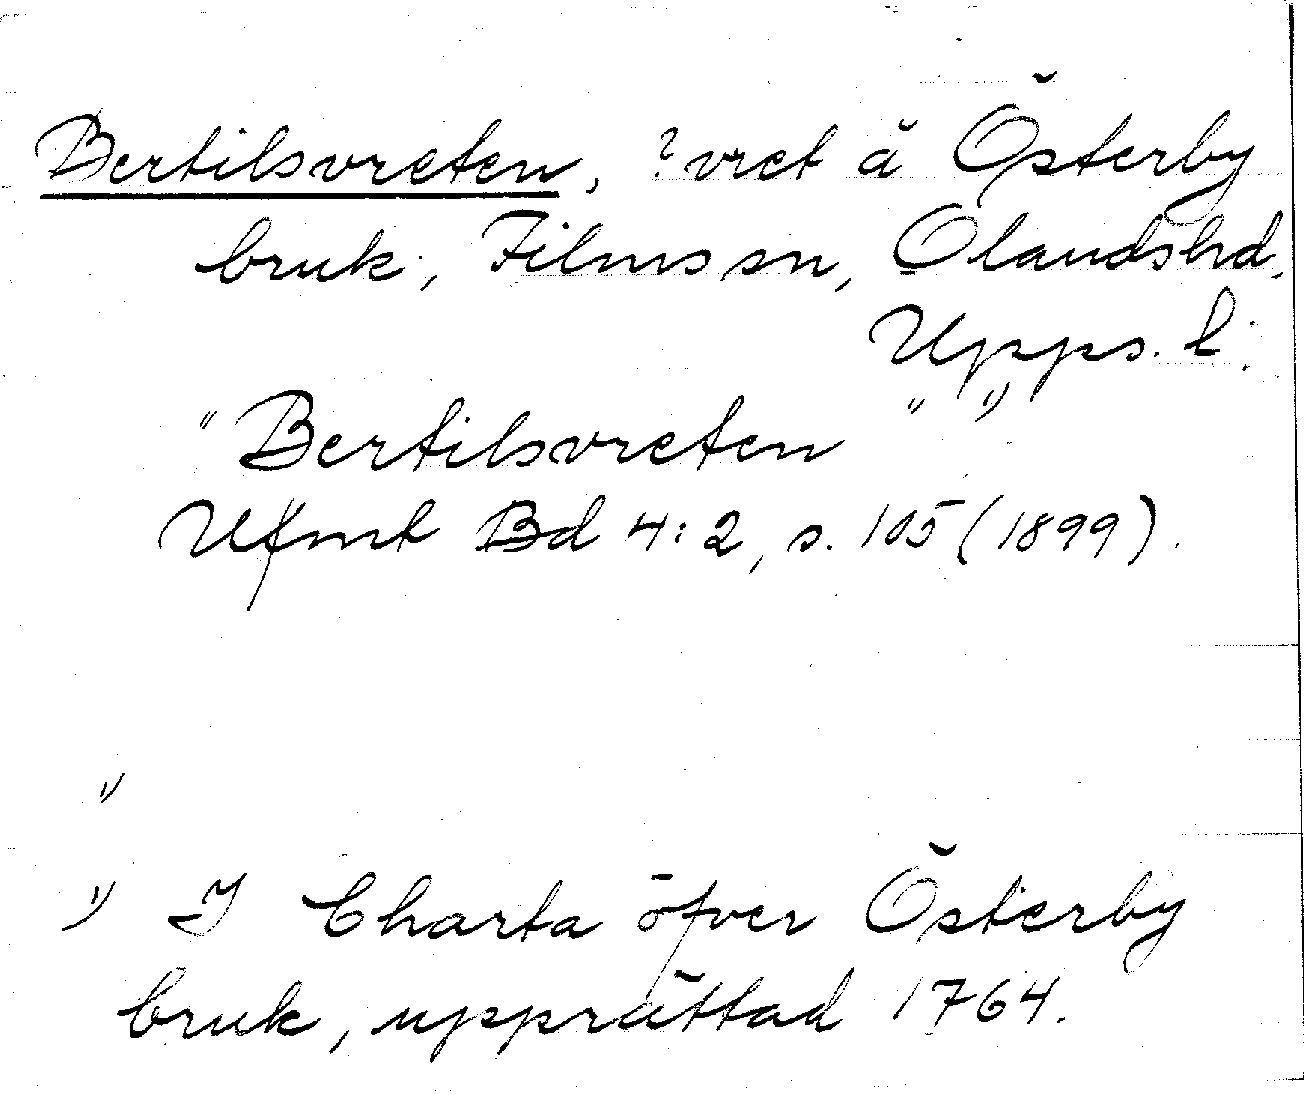 Bertilsvreten, ? vret å Österby
bruk, Films sn, Olandshd,
Upps. l.
"Bertilsvreten" 1)
Ufmt Bd 4:2, s. 105 (1899).
"
1) I Charta öfver Österby
bruk, upprättad 1764.